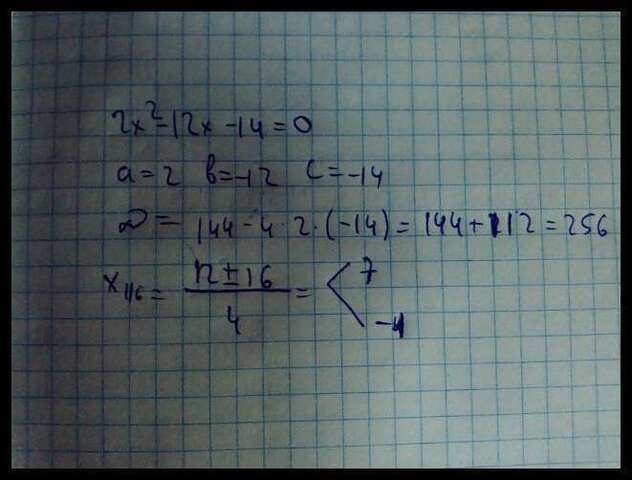 2x²-12x-14=0
a=2 b=-12 c=-14
D=144-4·2·(-14)=144+112=256
x =12±16/4=<7
-1